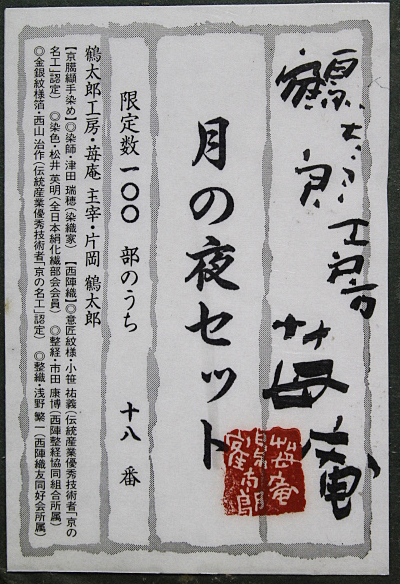 鶴太郎工房 苺庵
月の夜セット
限定数 一〇〇 部のうち 十八 番
鶴太郎工房・苺庵 主宰・片岡 鶴太郎
【京臈纈手染め】◎染師・津田 瑞穂(染織家) 【西陣織】◎意匠紋様・小笹 祐義(伝統産業優秀技術者「京の
名工」認定) ◎染色・松井 英明(全日本絹化繊部会会員) ◎整経・市田 康博(西陣整経協同組合所属)
◎金銀紋様箔・西山 治作(伝統産業優秀技術者「京の名工」認定) ◎整織・浅野 繁一(西陣織友同好会所属)